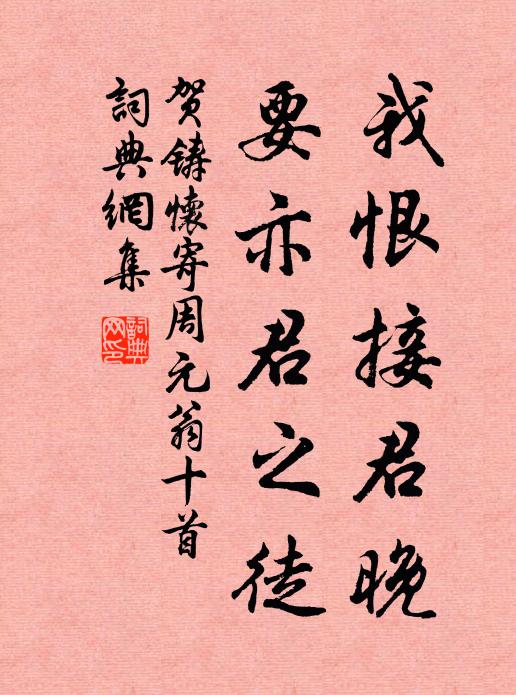 我恨接君晚
要亦君之徒
贺鑄懷寄周元翁十首
詞典網集
詞典网印